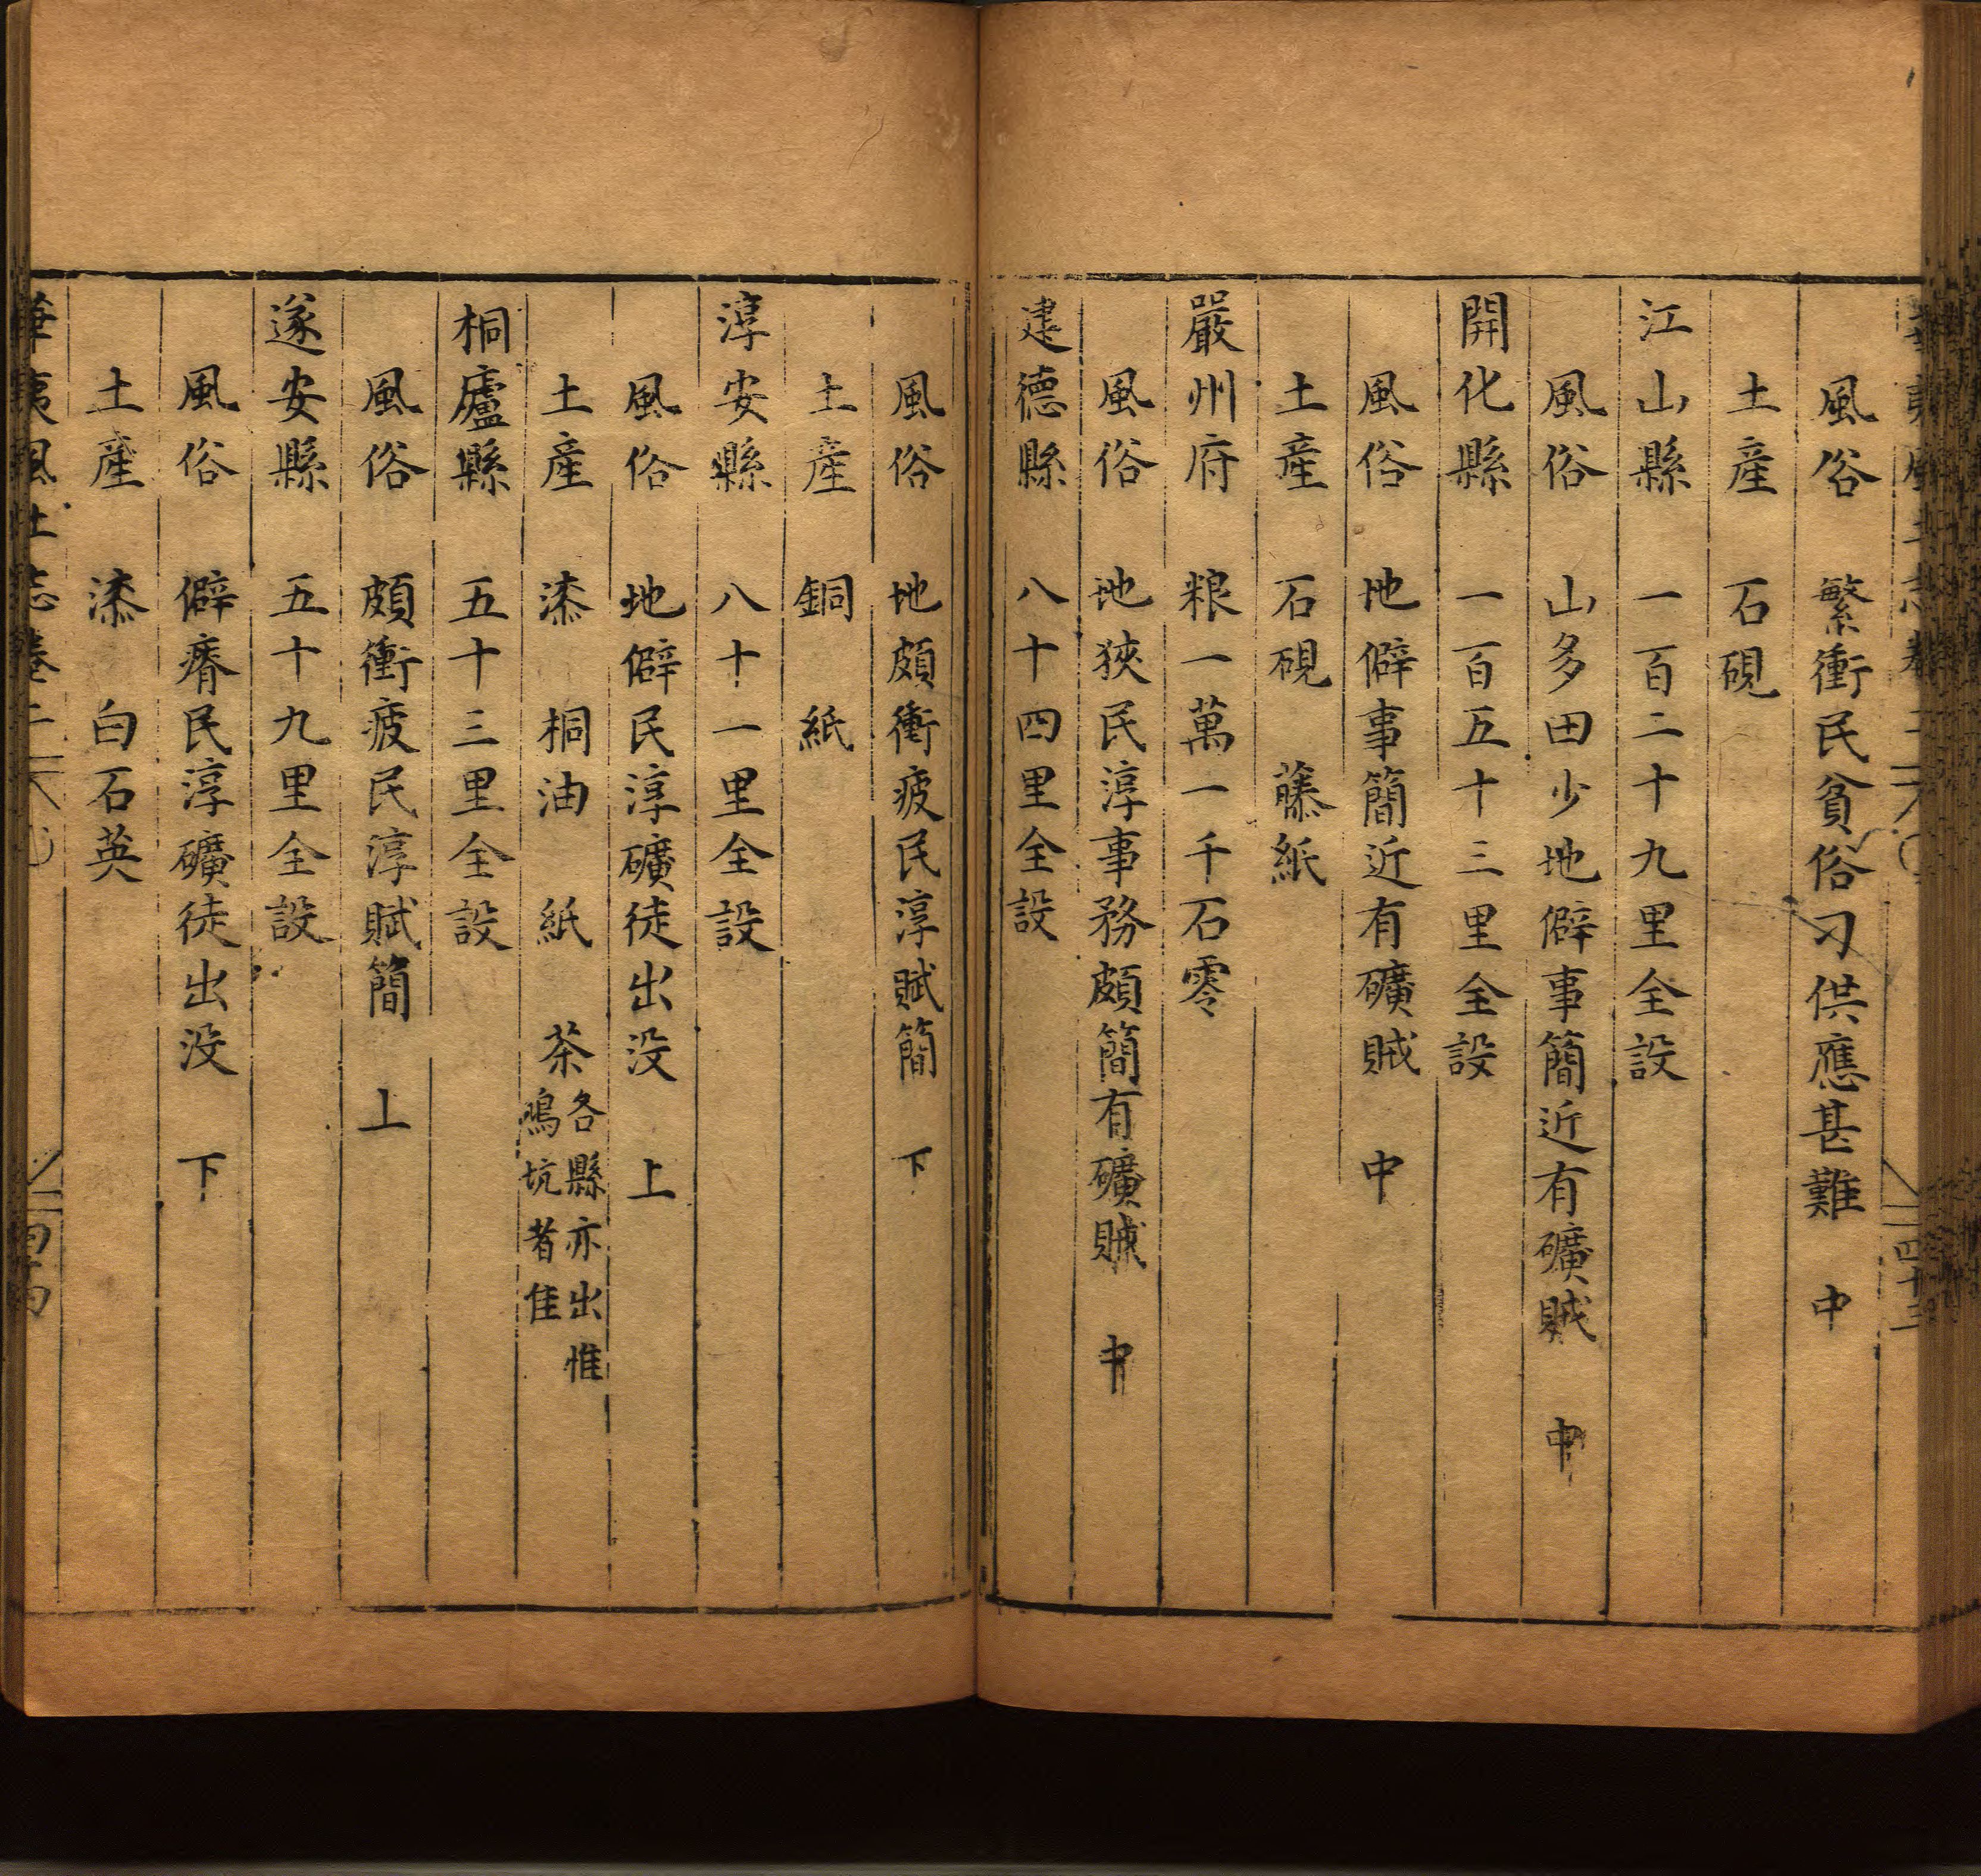 風俗 繁衝民貧俗刁供應甚難 中
土產 石硯
江山縣 一百二十九里全設
風俗 山多田少地僻事簡近有礦賊 中
開化縣 一百五十三里全設
風俗 地僻事簡近有礦賊 中
土產 石硯 藤紙
嚴州府 粮一萬一千石零
風俗 地狹民淳事務頗簡有礦賊 中
建德縣 八十四里全設
風俗 地頗衝疲民淳賦簡 下
土產 銅 紙
淳安縣 八十一里全設
風俗 地僻民淳礦徒出没 上
土產 漆 桐油 紙 茶 各縣亦出惟
鳩坑者佳
桐廬縣 五十三里全設
風俗 頗衝疲民淳賦簡 上
遂安縣 五十九里全設
風俗 僻瘠民淳礦徒出没 下
土產 漆 白石英
夷風土志卷二